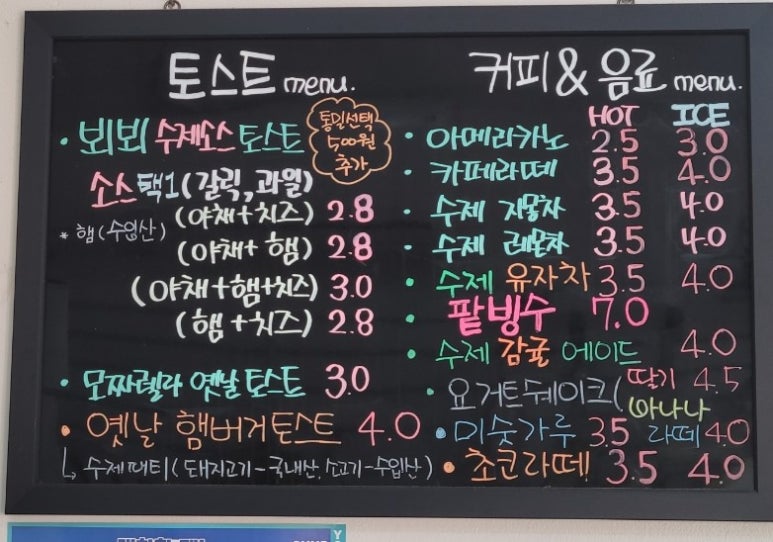 토스트 menu.
· 뵈뵈 수제소스 토스트
통밀선택
500원
추가
소스택1(갈릭,과일)
(야채+치즈) 2.8
* 햄(수입산)
(야채+햄) 2.8
(야채+햄+치즈) 3.0
(햄+치즈) 2.8
· 모짜렐라 옛날토스트 3.0
· 옛날 햄버거토스트 4.0
↳ 수제패티(돼지고기-국내산, 소고기-수입산)
커피&음료 menu.
HOT ICE
· 아메리카노 2.5 3.0
· 카페라떼 3.5 4.0
· 수제 자몽차 3.5 4.0
· 수제 레몬차 3.5 4.0
· 수제 유자차 3.5 4.0
· 팥빙수 7.0
· 수제 감귤 에이드 4.0
· 요거트쉐이크(딸기 4.5
바나나
· 미숫가루 3.5 라떼 4.0
· 초코라떼 3.5 4.0